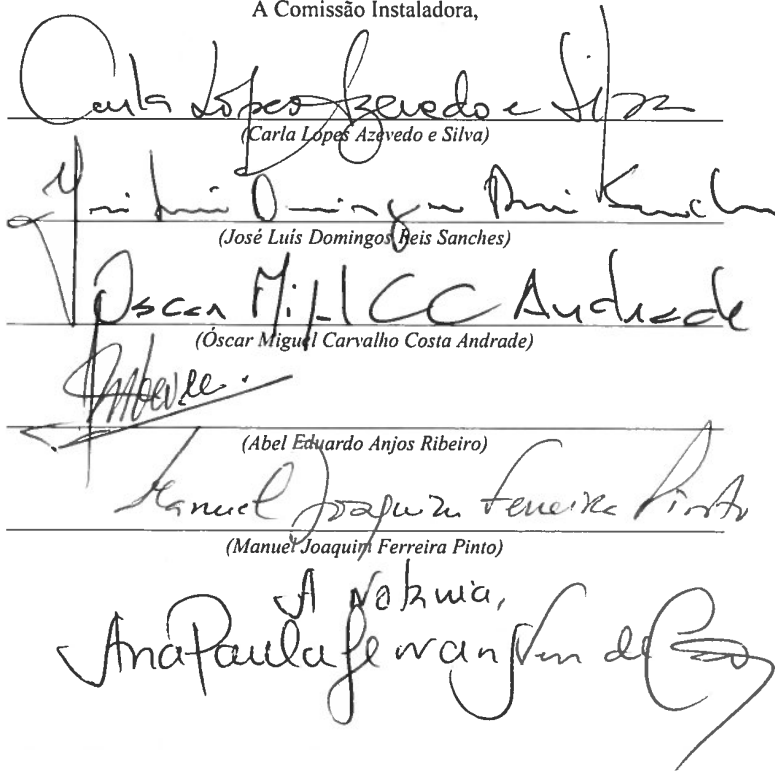 A Comissão Instaladora,
Carla Lopes Azevedo e Silva
(Carla Lopes Azevedo e Silva)
José Luís Domingos Reis Sanches
(José Luís Domingos Reis Sanches)
Oscar Migl CC Andrade
(Óscar Miguel Carvalho Costa Andrade)
(Abel Eduardo Anjos Ribeiro)
Manuel Joaquim Ferreira Pinto
(Manuel Joaquim Ferreira Pinto)
A Notária,
Ana Paula de